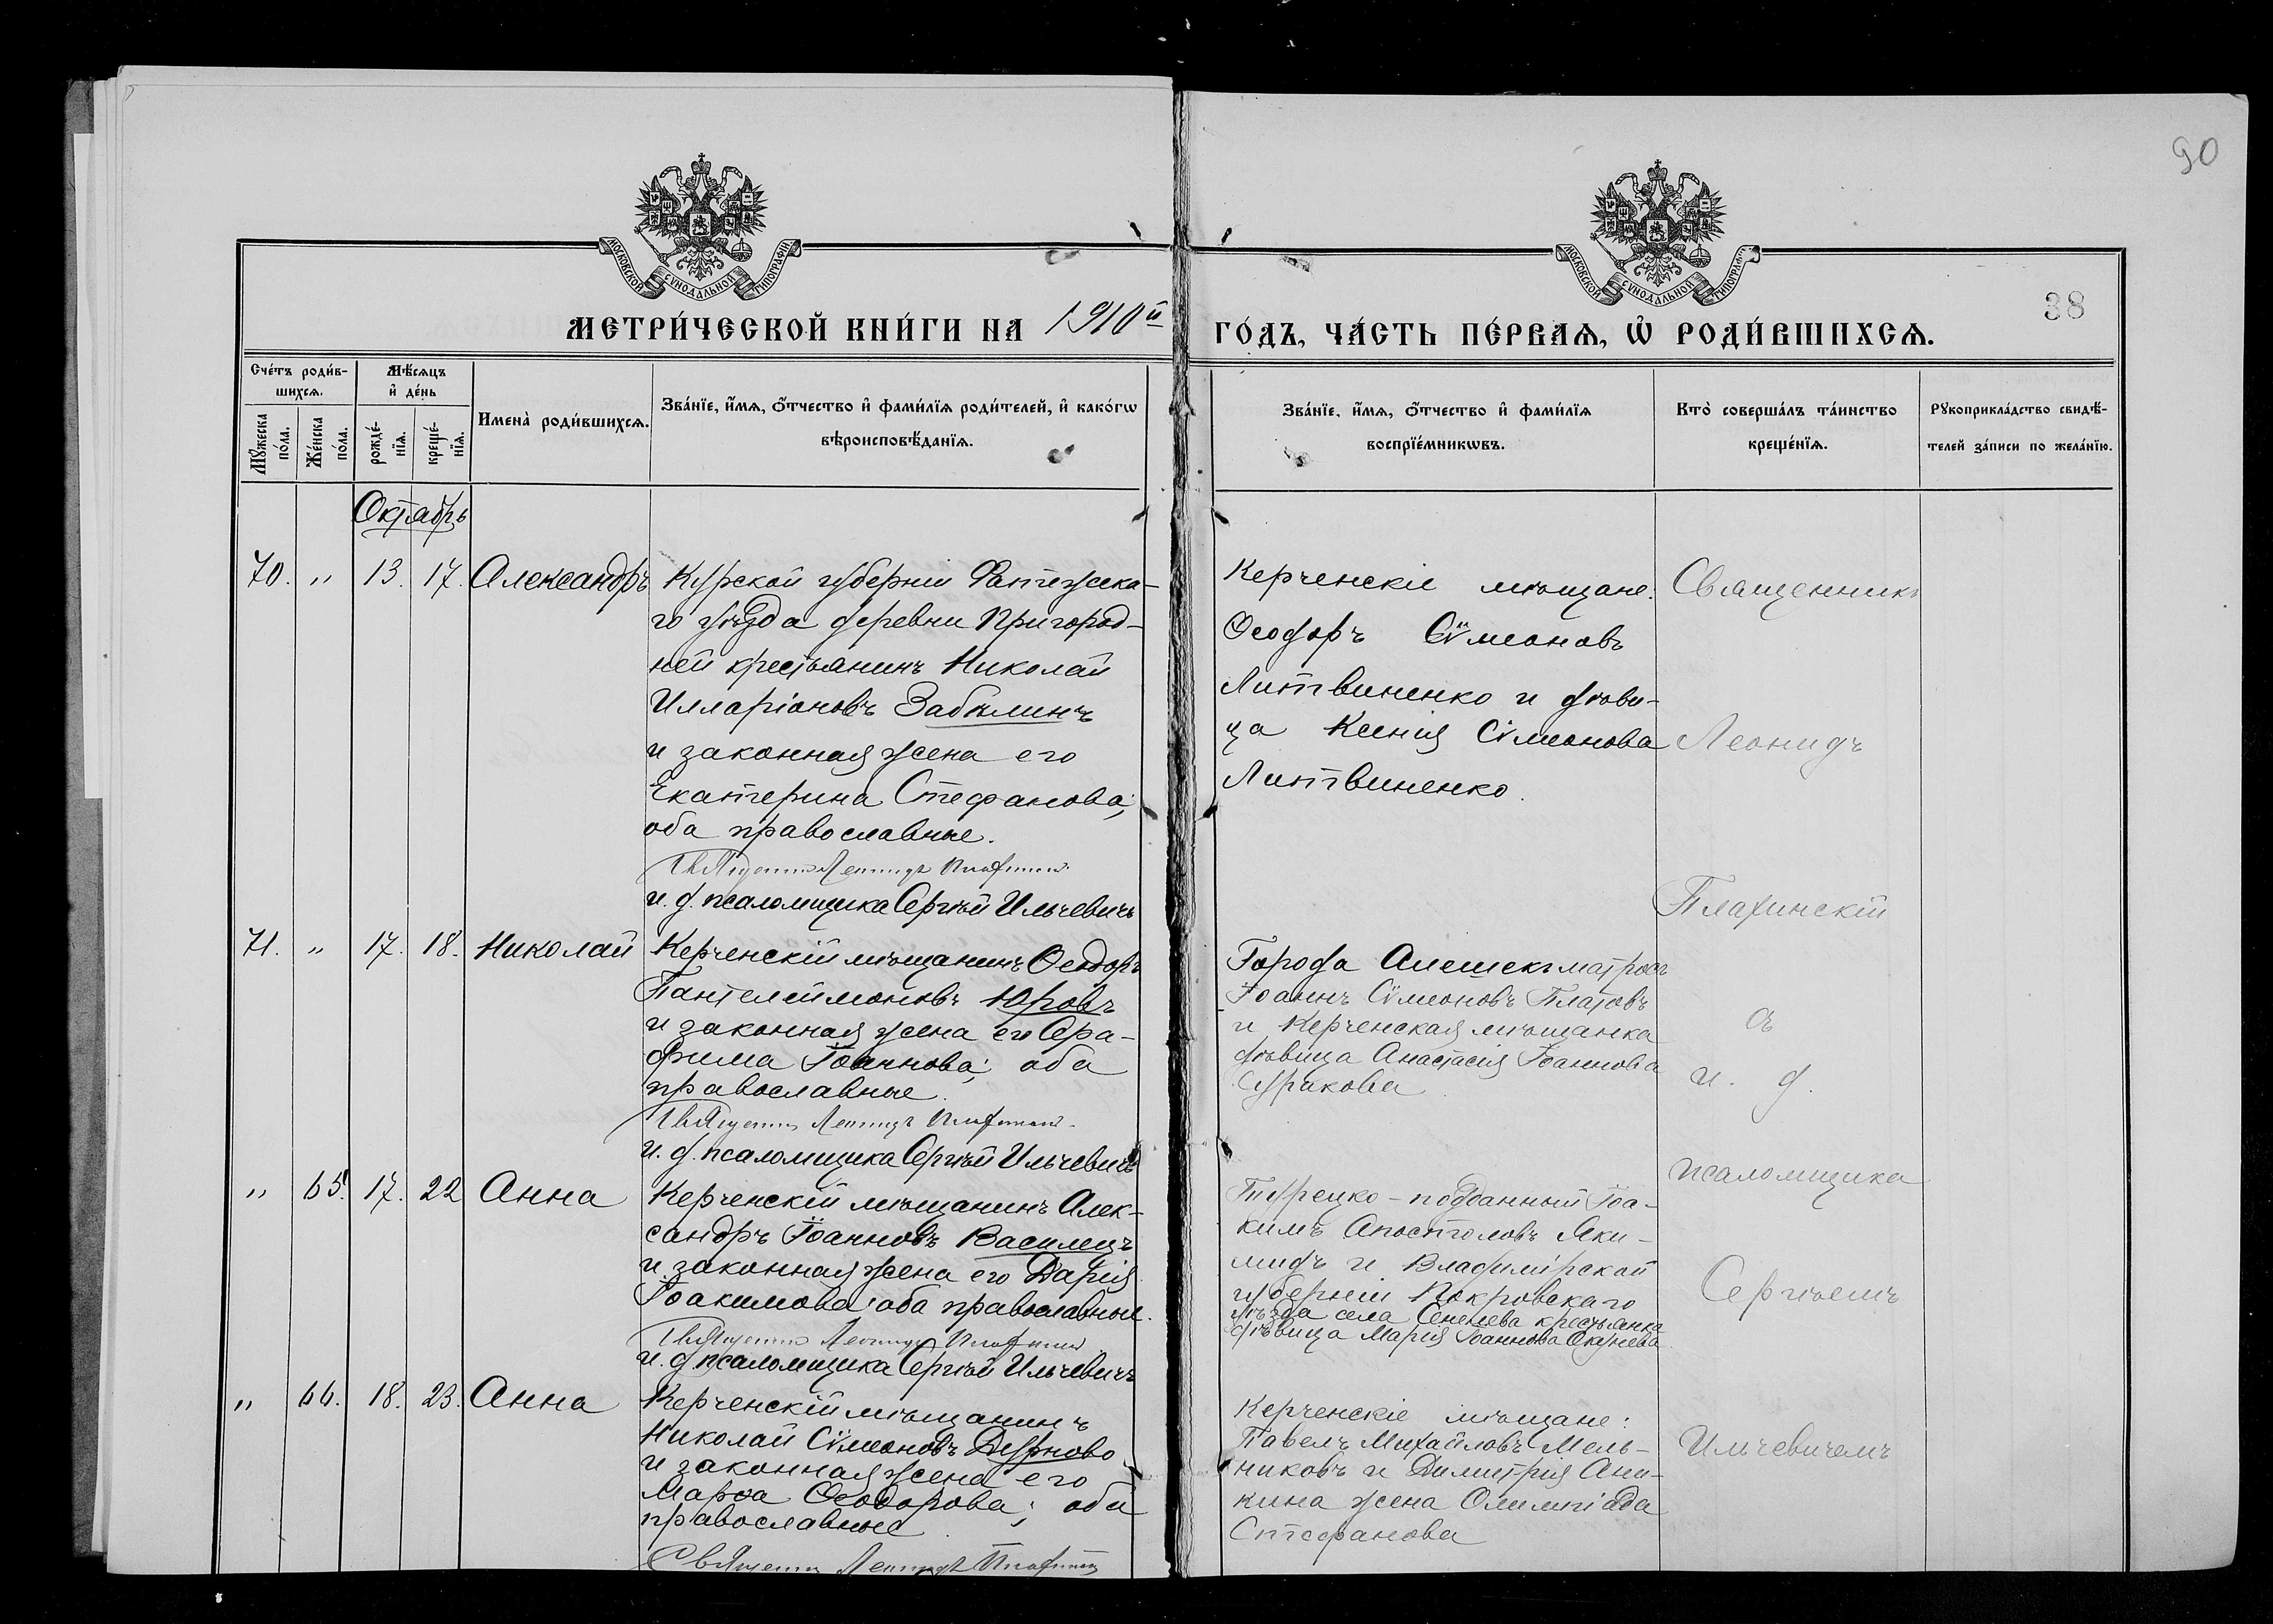 90
38
МОСКОВСКОЙ СѴНОДАЛЬНОЙ ТИПОГРАФІИ
МОСКОВСКОЙ СѴНОДАЛЬНОЙ ТИПОГРАФІИ
МЕТРИ́ЧЕСКОЙ КНИ́ГИ НА 1910й
ГО́ДЪ, ЧА́СТЬ ПЕ́РВАѦ, Ѡ҆ РОДИ́ВШИХСѦ.
Сче́тъ роди́в-
шихсѧ.
Мꙋ́жеска по́ла.
Же́нска по́ла.
Мѣ́сѧцъ
и҆ де́нь
рожде́-
нїѧ.
креще́-
нїѧ.
Имена̀ роди́вшихсѧ.
Зва́нїе, и҆́мѧ, ѻ҆́тчество и҆ фами́лїѧ роди́телей, и҆ како́гѡ
вѣроисповѣ́данїѧ.
Зва́нїе, и҆́мѧ, ѻ҆́тчество и҆ фами́лїѧ
воспрїе́мникѡвъ.
Кто̀ соверша́лъ та́инство
креще́нїѧ.
Рꙋкоприкла́дство свидѣ́-
телей за́писи по жела́нїю.
Октябрь
70. " 13. 17. Александръ
Курской губерніи Фатежска-
го уѣзда деревни Пригород-
ней крестьянинъ Николай
Илларіоновъ Забѣлинъ
и законная жена его
Екатерина Стефанова;
оба православные.
Священникъ Леонидъ Плахинскій
и. д. псаломщика Сергѣй Ильчевичъ
Керченскіе мѣщане:
Ѳеодоръ Сѵмеоновъ
Литвиненко и дѣви-
ца Ксенія Сѵмеонова
Литвиненко.
Священникъ
Леонидъ
Плахинскій
съ
и. д.
псаломщика
Сергѣемъ
Ильчевичемъ
71. " 17. 18. Николай
Керченскій мѣщанинъ Ѳеодоръ
Пантелеймоновъ Юровъ
и законная жена его Сера-
фима Іоаннова; оба
православные.
Священникъ Леонидъ Плахинскій
и. д. псаломщика Сергѣй Ильчевичъ
Города Алешекъ матросъ
Іоаннъ Сѵмеоновъ Платовъ
и Керченская мѣщанка
дѣвица Анастасія Іоаннова
" 65. 17. 22 Анна
Керченскій мѣщанинъ Алек-
сандръ Іоанновъ Василецъ
и законная жена его Дарія
Іоакимова; оба православные.
Священникъ Леонидъ Плахинскій
и. д. псаломщика Сергѣй Ильчевичъ
Турецко-подданный Іоа-
кимъ Апостоловъ Яки-
мидъ и Владимірской
губерніи Покровскаго
уѣзда села крестьянка
дѣвица Марія Іоаннова Окунева
" 66. 18. 23. Анна
Керченскій мѣщанинъ
Николай Сѵмеоновъ Дурново
и законная жена его
Марѳа Ѳеодорова; оба
православные
Священникъ Леонидъ Плахинскій
Керченскіе мѣщане:
Павелъ Михайловъ Мель-
никовъ и Димитрія Ани-
кина жена Олимпіада
Стефанова